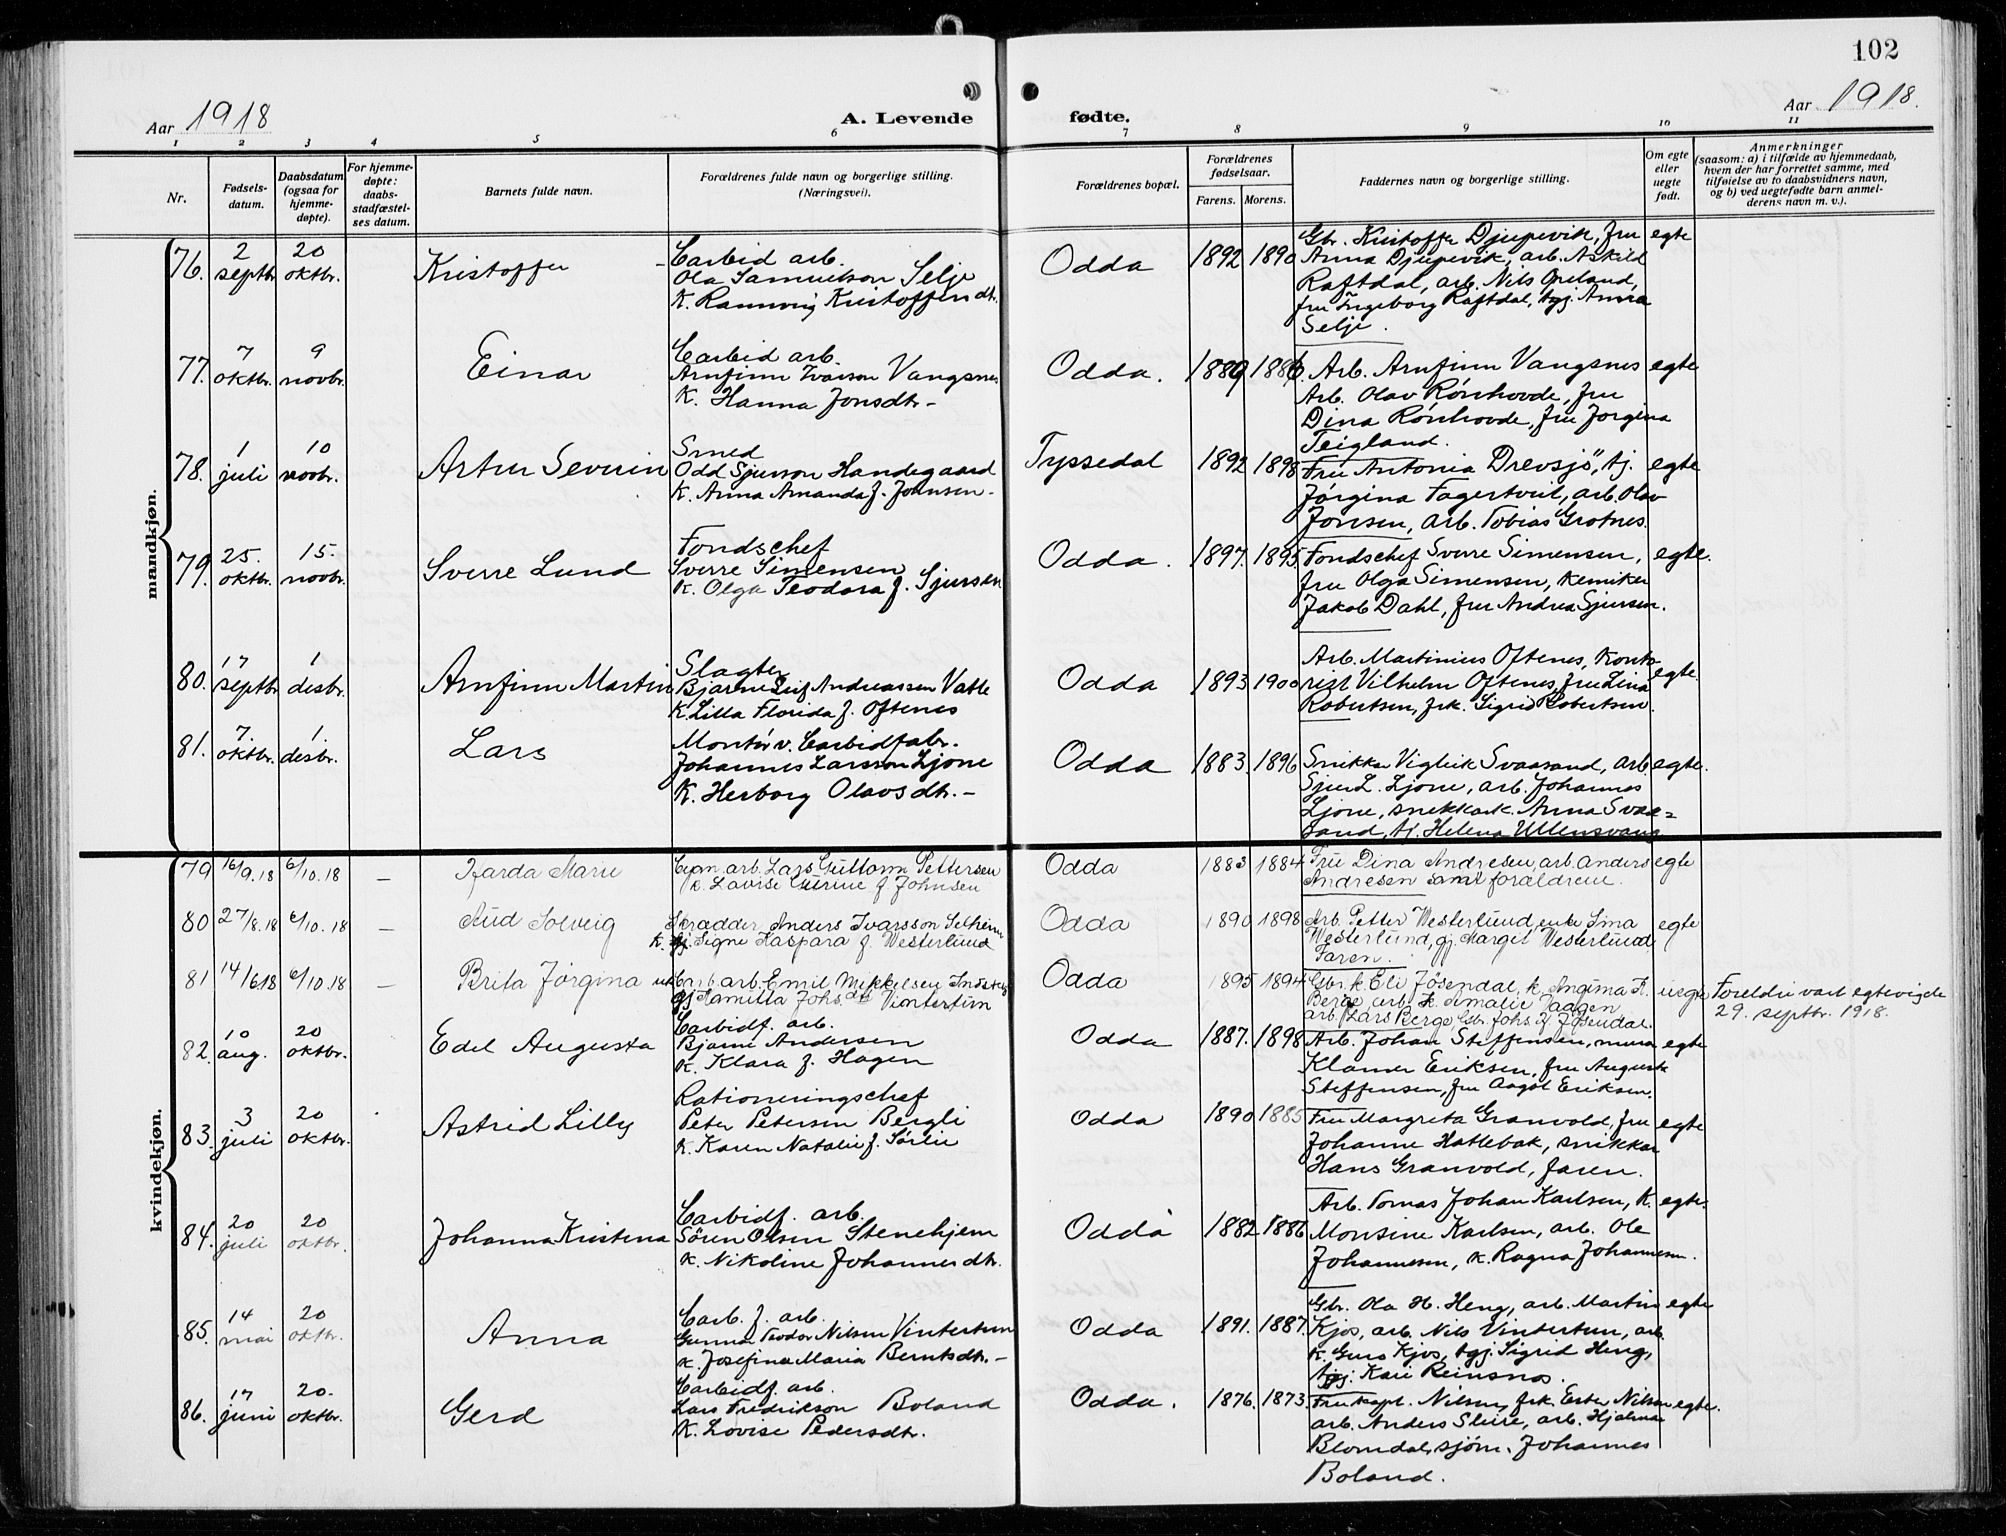 102
Aar 1918
A. Levende
fødte.
Aar 1918.
1 2 3 4 5 6 7 8 9 10 11
Nr.
Fødsels-
datum.
Daabsdatum
(ogsaa for
hjemme-
døpte).
For hjemme-
døpte:
daabs-
stadfæstel-
ses datum.
Barnets fulde navn.
Forældrenes fulde navn og borgerlige stilling.
(Næringsvei).
Forældrenes bopæl.
Forældrenes
fødselsaar.
Farens. Morens.
Faddernes navn og borgerlige stilling.
Om egte
eller
uegte
født.
Anmerkninger
(saasom: a) i tilfælde av hjemmedaab,
hvem der har forrettet samme, med
tilføielse av to daabsvidners navn,
og b) ved uegtefødte barn anmel-
derens navn m. v.).
mandkjøn.
76. 2 septbr. 20 oktbr. Kristoffer
Carbid arb.
Ola Samuelson Selje
K. Rannveig Kristoffersdtr.
Odda 1892 1890
Gbr. Kristoffer Djupevik, fru
Anna Djupevik, arb. Askild
Raftdal, arb. Nils Opeland,
fru Ingeborg Raftdal, tgj. Anna
Selje.
egte
77. 7 oktbr. 9 novbr. Einar
Carbid arb.
Arnfinn Ivarson Vangsnes
K. Hanna Jonsdtr.-
Odda. 1889 1886
Arb. Arnfinn Vangsnes
Arb. Olav Rønhovde, fru
Dina Rønhovde, fru Jorgina
Teigland.
egte
78. 1 juli 10 novbr. Artur Severin
Smed
Odd Sjurson Handegaard
K. Anna Amanda f. Johnsen-
Tyssedal 1892 1898
Fru Antonia Drevsjö, tj.
Jørgina Fagertveit, arb. Olav
Jonsen, arb. Tobias Grotnes.
egte
79. 25. oktbr. 15. novbr. Sverre Lund
Fondschef
Sverre Simensen
K. Olga Teodora f. Sjursen
Odda. 1897. 1895
Fondschef Sverre Simensen,
fru Olga Simensen, kemiker
Jakob Dahl, fru Andrea Sjursen.
egte.
80. 17 septbr. 1 desbr. Arnfinn Martin
Slagter
Bjarne Leif Andreassen Vatle
K. Lilla Florida f. Oftenes
Odda 1893 1900
Arb. Martinius Oftenes, Konto-
rist Vilhelm Oftenes, fru Lina
Robertsen, frk. Sigrid Robertsen.
egte.
81. 7. oktbr. 1. desbr. Lars
Montør v. Carbidfabr.
Johannes Larsson Ljone
K. Herborg Olavsdtr.-
Odda 1883. 1896
Snikkar Vigleik Svaasand, arb.
Sjur L. Ljone, arb. Johannes
Ljone, snekkark. Anna Svaa-
sand, tj. Helena Ullensvang
egte.
kvindekjøn.
79 16/9.18 6/10.18 - Harda Marie
Cyan.arb. Lars Guttorm Pettersen
k. Lovise Catrine f. Johnsen
Odda 1883 1884
Fru Dina Andresen, arb. Anders
Andresen samt foraldrene.
egte
80 27/8.18 6/10.18 - Aud Solveig
Skrædder Anders Ivarsson Seltveit
K. Signe Kaspara f. Westerlund
Odda 1890 1898
Arb. Petter Westerlund, enke Sina
Westerlund, gj. Margit Westerlund,
Faren.
egte
81 14/618 6/10.18 - Brita Jørgina
Carb.arb. Emil Mikkelsen
gj. Kamilla Johs.dtr Vintertun
Odda 1895 1894
Gbr. k. Eli Jösendal, k. Angima K.
Berge, arb. k. Amalie Vaagen
arb. Lars Berge, Gbr. Johs. Jösendal.
uegte
Foreldri vart egtevigde
29. septbr. 1918.
82. 10 aug. 20 oktbr. Edel Augusta
Carbidf. arb.
Bjarne Andersen
K. Klara f. Hagen
Odda 1887. 1898
Arb. Johan Steffensen, murar
Klamer Eriksen, fru Augusta
Steffensen, fru Aagot Eriksen.
egte
83. 3 juli 20 oktbr. Astrid Lilly
Rationeringschef
Peter Petersen Bergli
K. Karen Natalie f. Sørlie
Odda 1890 1885
Fru Margreta Granvold, fru
Johanne Hatlebak, snikkar
Hans Granvold, faren.
egte
84. 20 juli 20 oktbr. Johanna Kristena
Carbidf. arb.
Søren Olsen Stenehjem
K. Nikoline Johannesdtr.
Odda 1882 1886
Arb. Tomas Johan Karlsen, K.
Monsine Karlsen, arb. Ole
Johannesen, k. Ragna Johannesen.
egte.
85. 14 mai 20 oktbr. Anna
Carb. f. arb.
Gunnar Teodor Nilsen Vintertun
K. Josefina Maria Berntsdtr.-
Odda 1891. 1887.
Gbr. Ola H. Heng, arb. Martin
Kjos, arb. Nils Vintertun, arb.
k. Guro Kjos, tgj. Sigrid Heng,
tgj. Kari Reinsnos.
egte
86. 17 juni 20. oktbr. Gerd
Carbidf. arb.
Lars Fredrikson Boland
K. Lovise Pedersdtr.
Odda. 1876. 1873.
Fru kapt. Nilsen, frk. Ester Nilsen
arb. Anders Sleire, arb. Hjalmar
Blomdal, sjøm. Johannes
Boland.
egte.